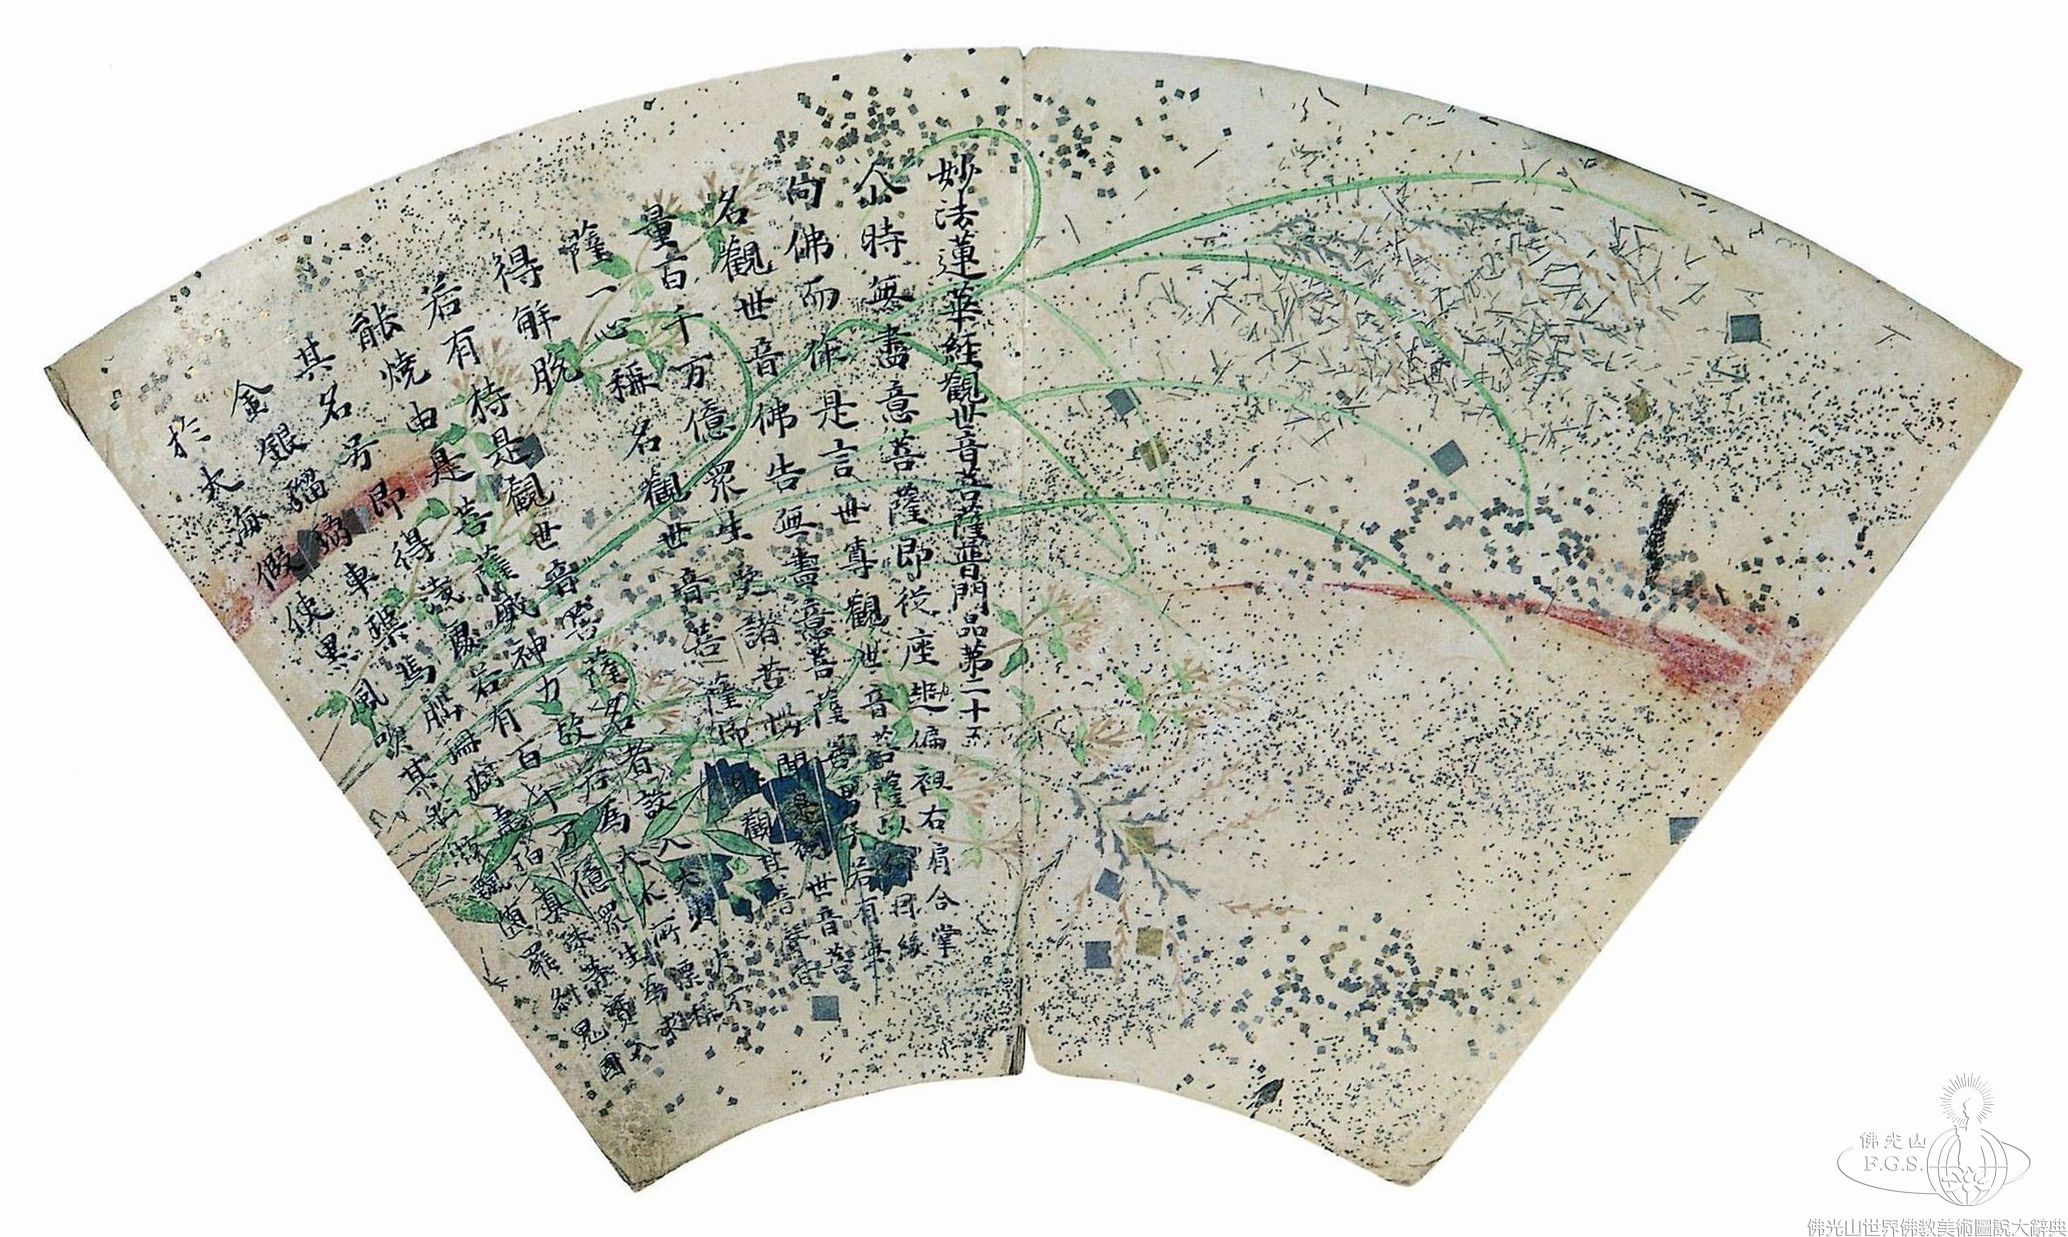 妙法蓮華經觀世音菩薩普門品第二十五
尒時無盡意菩薩即從座起偏袒右肩合掌
向佛而作是言世尊觀世音菩薩以何因緣
名觀世音佛告無盡意菩薩善男子若有無
量百千万億眾生受諸苦惱聞是觀世音菩
薩一心稱名觀世音菩薩即時觀其音聲皆
得解脫
若有持是觀世音菩薩名者設入大火火不
能燒由是菩薩威神力故若為大水所漂稱
其名号即得淺處若有百千万億眾生為求
金銀瑠璃車璖馬瑙珊瑚珀真珠等寶入
於大海假使黑風吹其船飄堕羅剎鬼國
佛光山
F.G.S.
佛光山世界佛教美術圖說大辭典